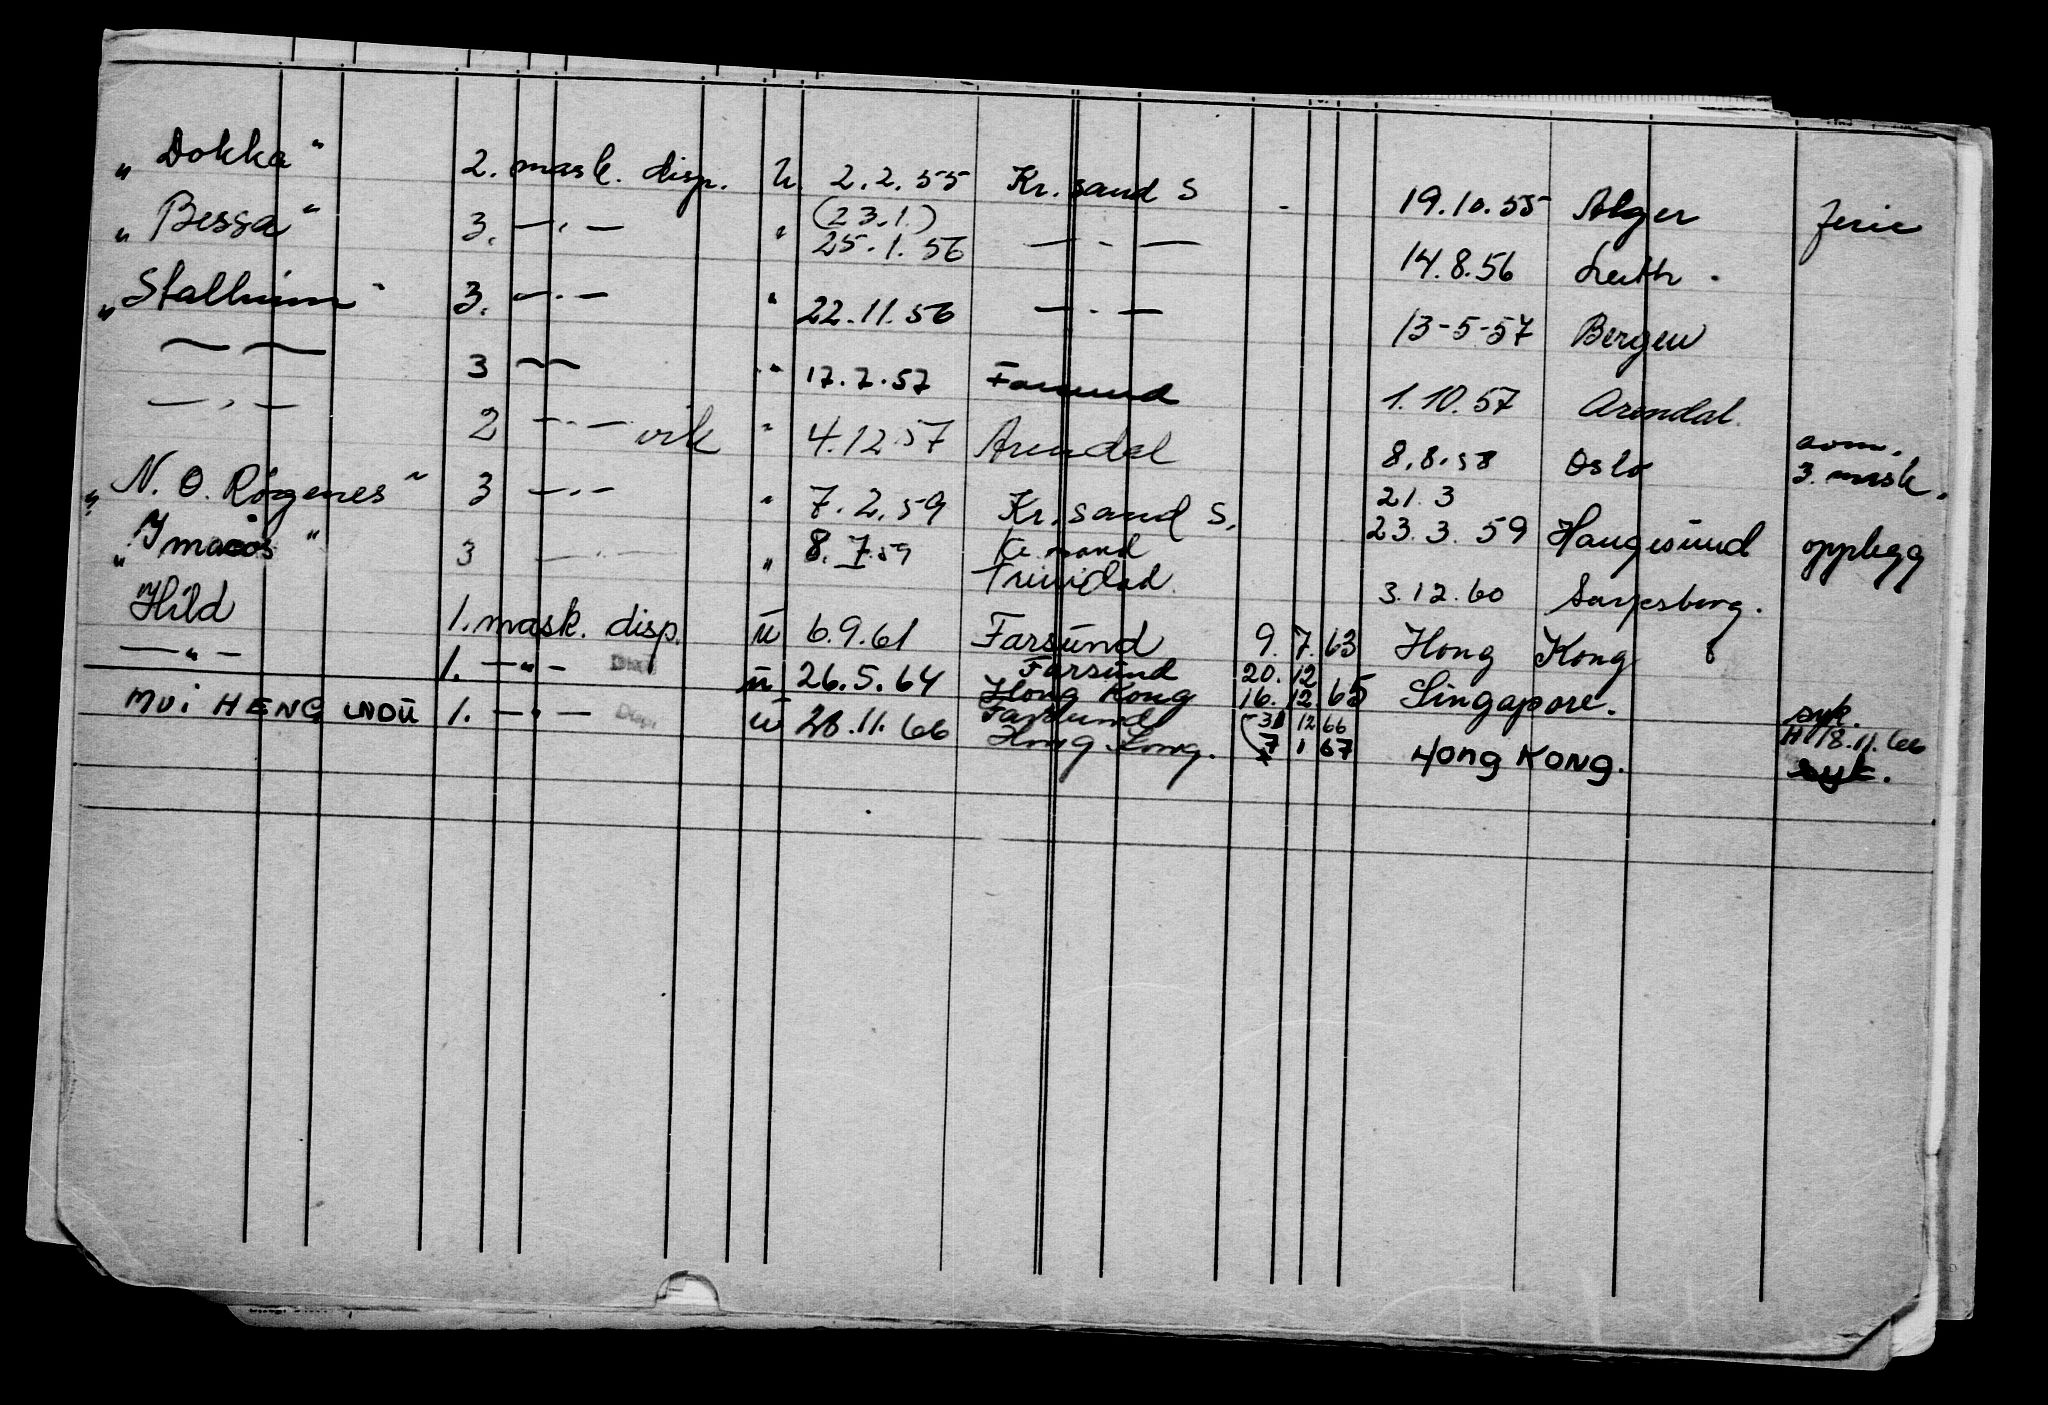 „Dokka“ 2. mask. disp. u. 2.2.55 Kr.sand S - 19.10.55 Alger ferie
„Bessa“ 3. —"— " (23.1.) 25.1.56 —"— 14.8.56 Leith.
„Stalheim“ 3. —"— " 22.11.56 —"— 13-5-57 Bergen
— — 3 — — " 17.7.57 Farsund 1.10.57 Arendal.
—"— 2 —"— vik " 4.12.57 Arendal 8.8.58 Oslo avm. 3. mask.
„N. O. Røgenes“ 3 —"— " 7.2.59 Kr.sand S. 21.3 23.3.59 Haugesund opplegg
„Imacos“ 3 —"— " 8.7.59 Kr.sand Trinidad. 3.12.60 Sarpsborg.
Hild 1. mask. disp. u 6.9.61 Farsund 9.7.63 Hong Kong
—"— 1. —"— Disp. u 26.5.64 Farsund Hong Kong 20.12 16.12.65 Singapore. syk.
MUI HENG 1. —"— Disp. u 28.11.66 Farsund Hong Kong. (31 12 66 7 1 67 HONG KONG. H 18.11.66 syk.